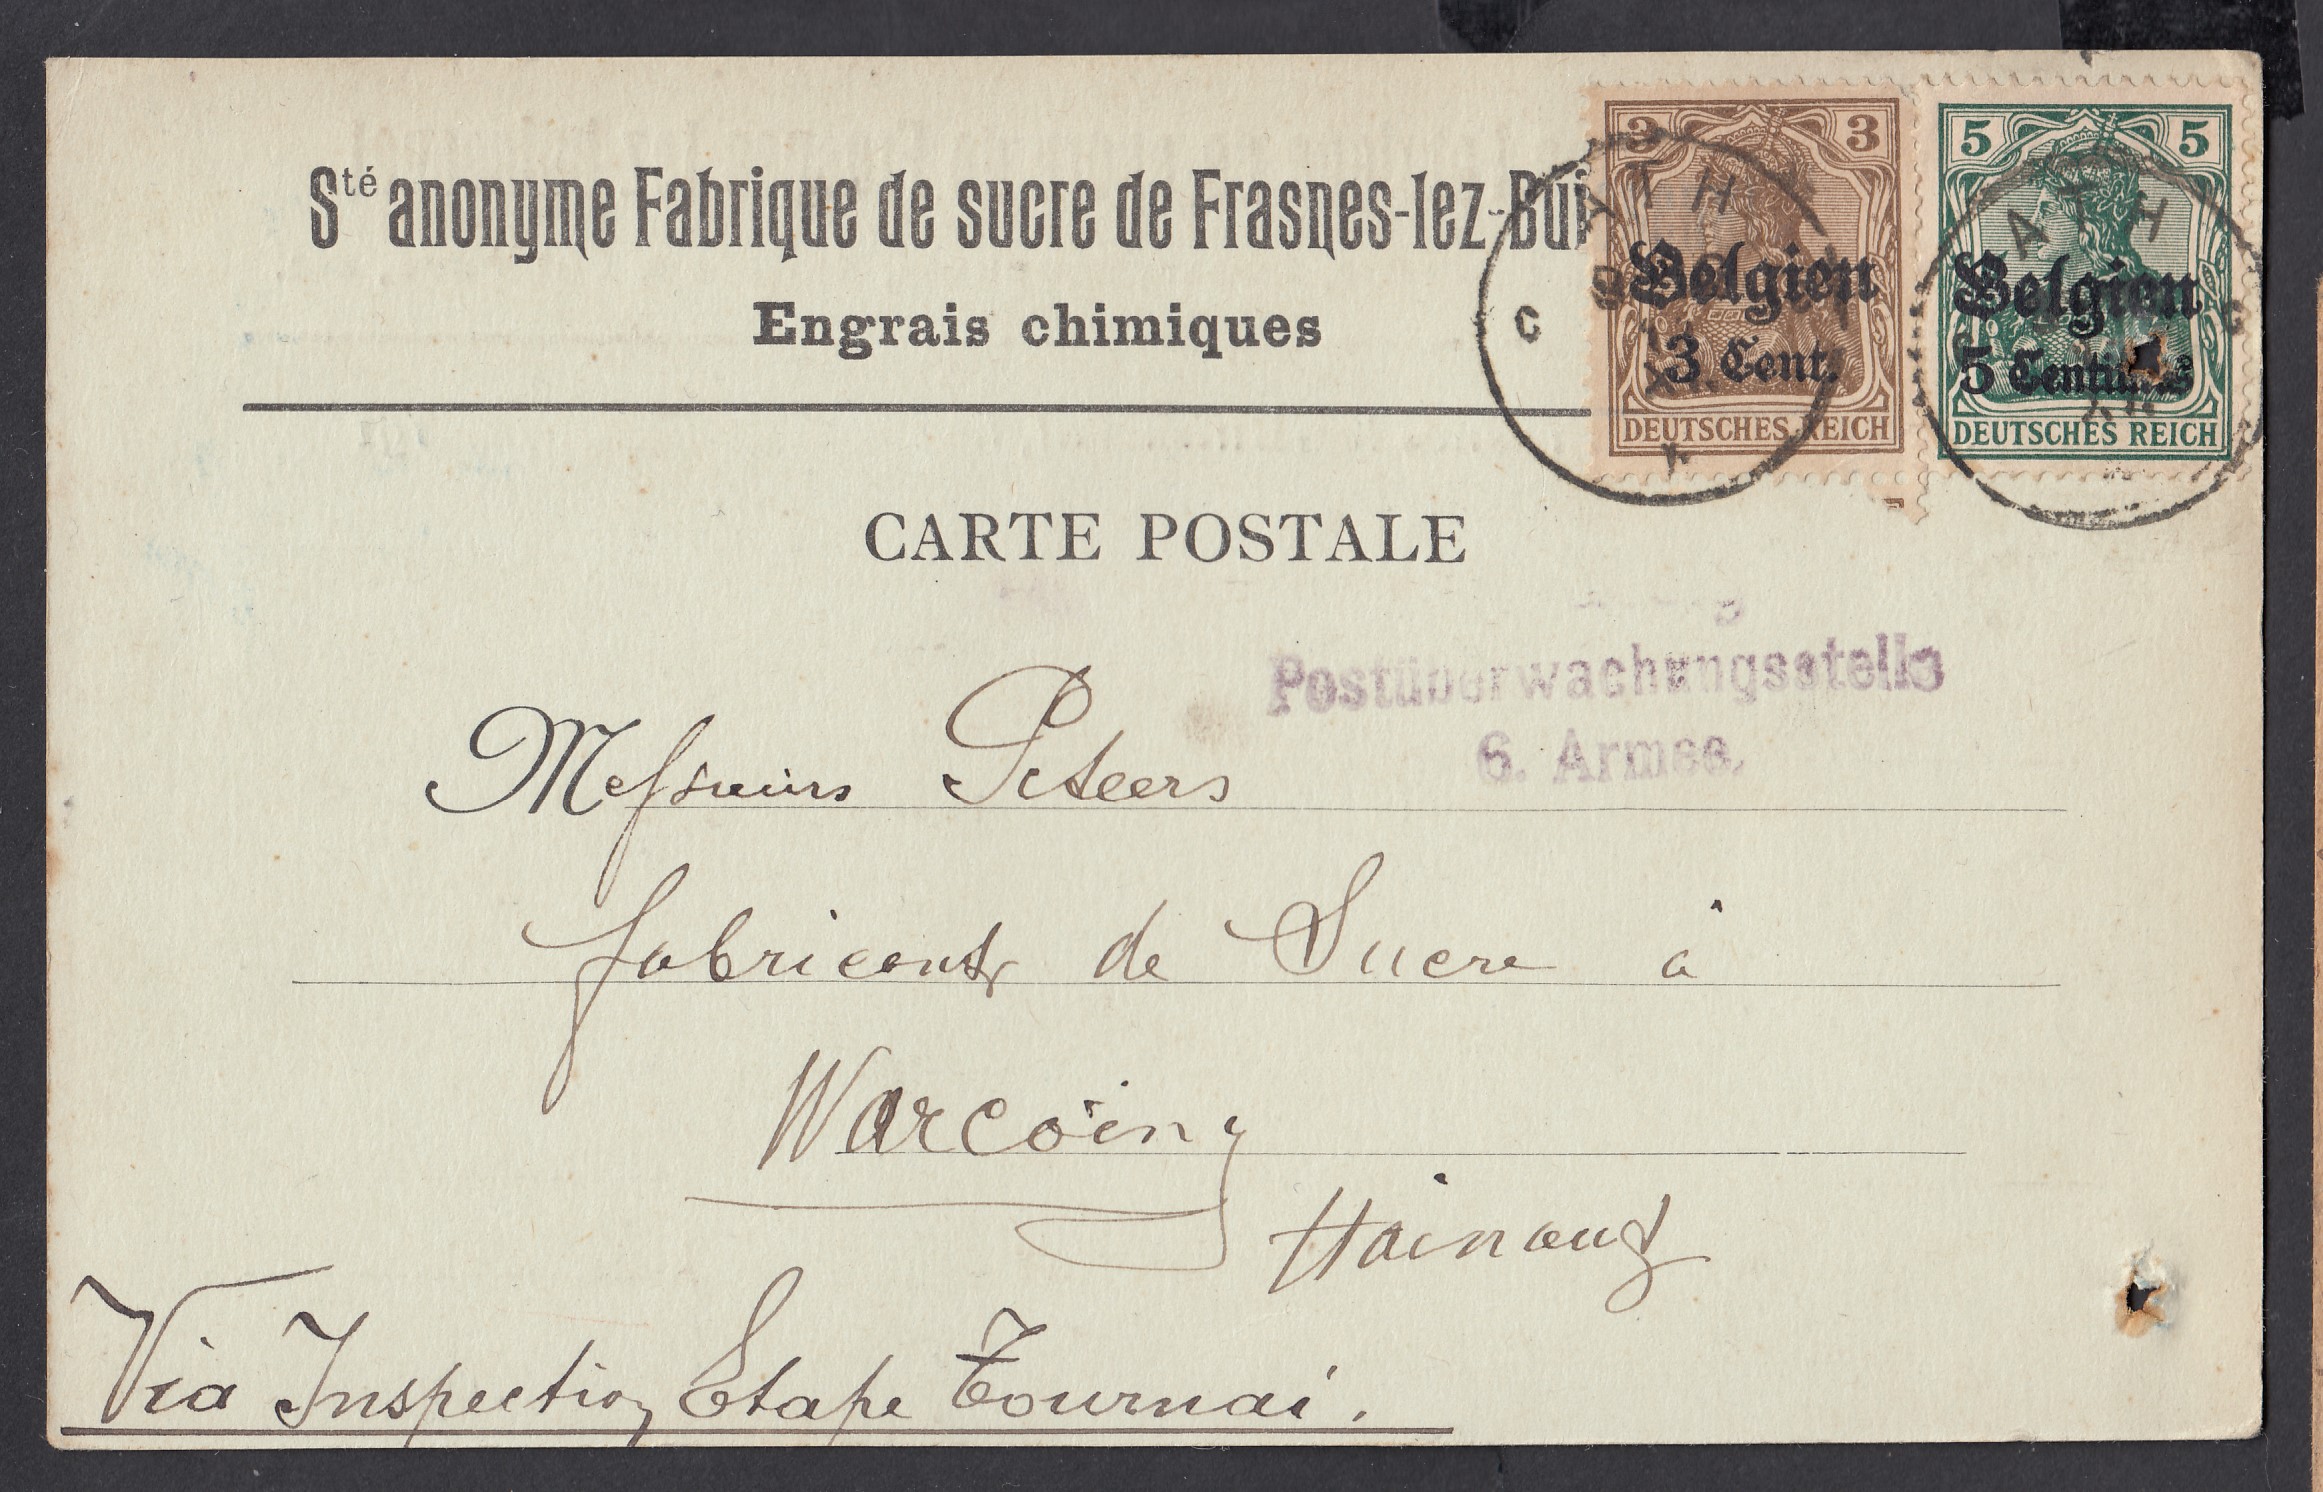 Sté anonyme Fabrique de sucre de Frasnes-lez-Bui
Engrais chimiques
3 3
Belgien
3 Cent.
DEUTSCHES REICH
5 5
ATH
Belgien
5 Centimes
DEUTSCHES REICH
CARTE POSTALE
Postüberwachungsstelle
6. Armee.
Messieurs Peteers
fabricants de Sucre à
Warcoing
Hainaut
Via Inspection Etape Tournai.